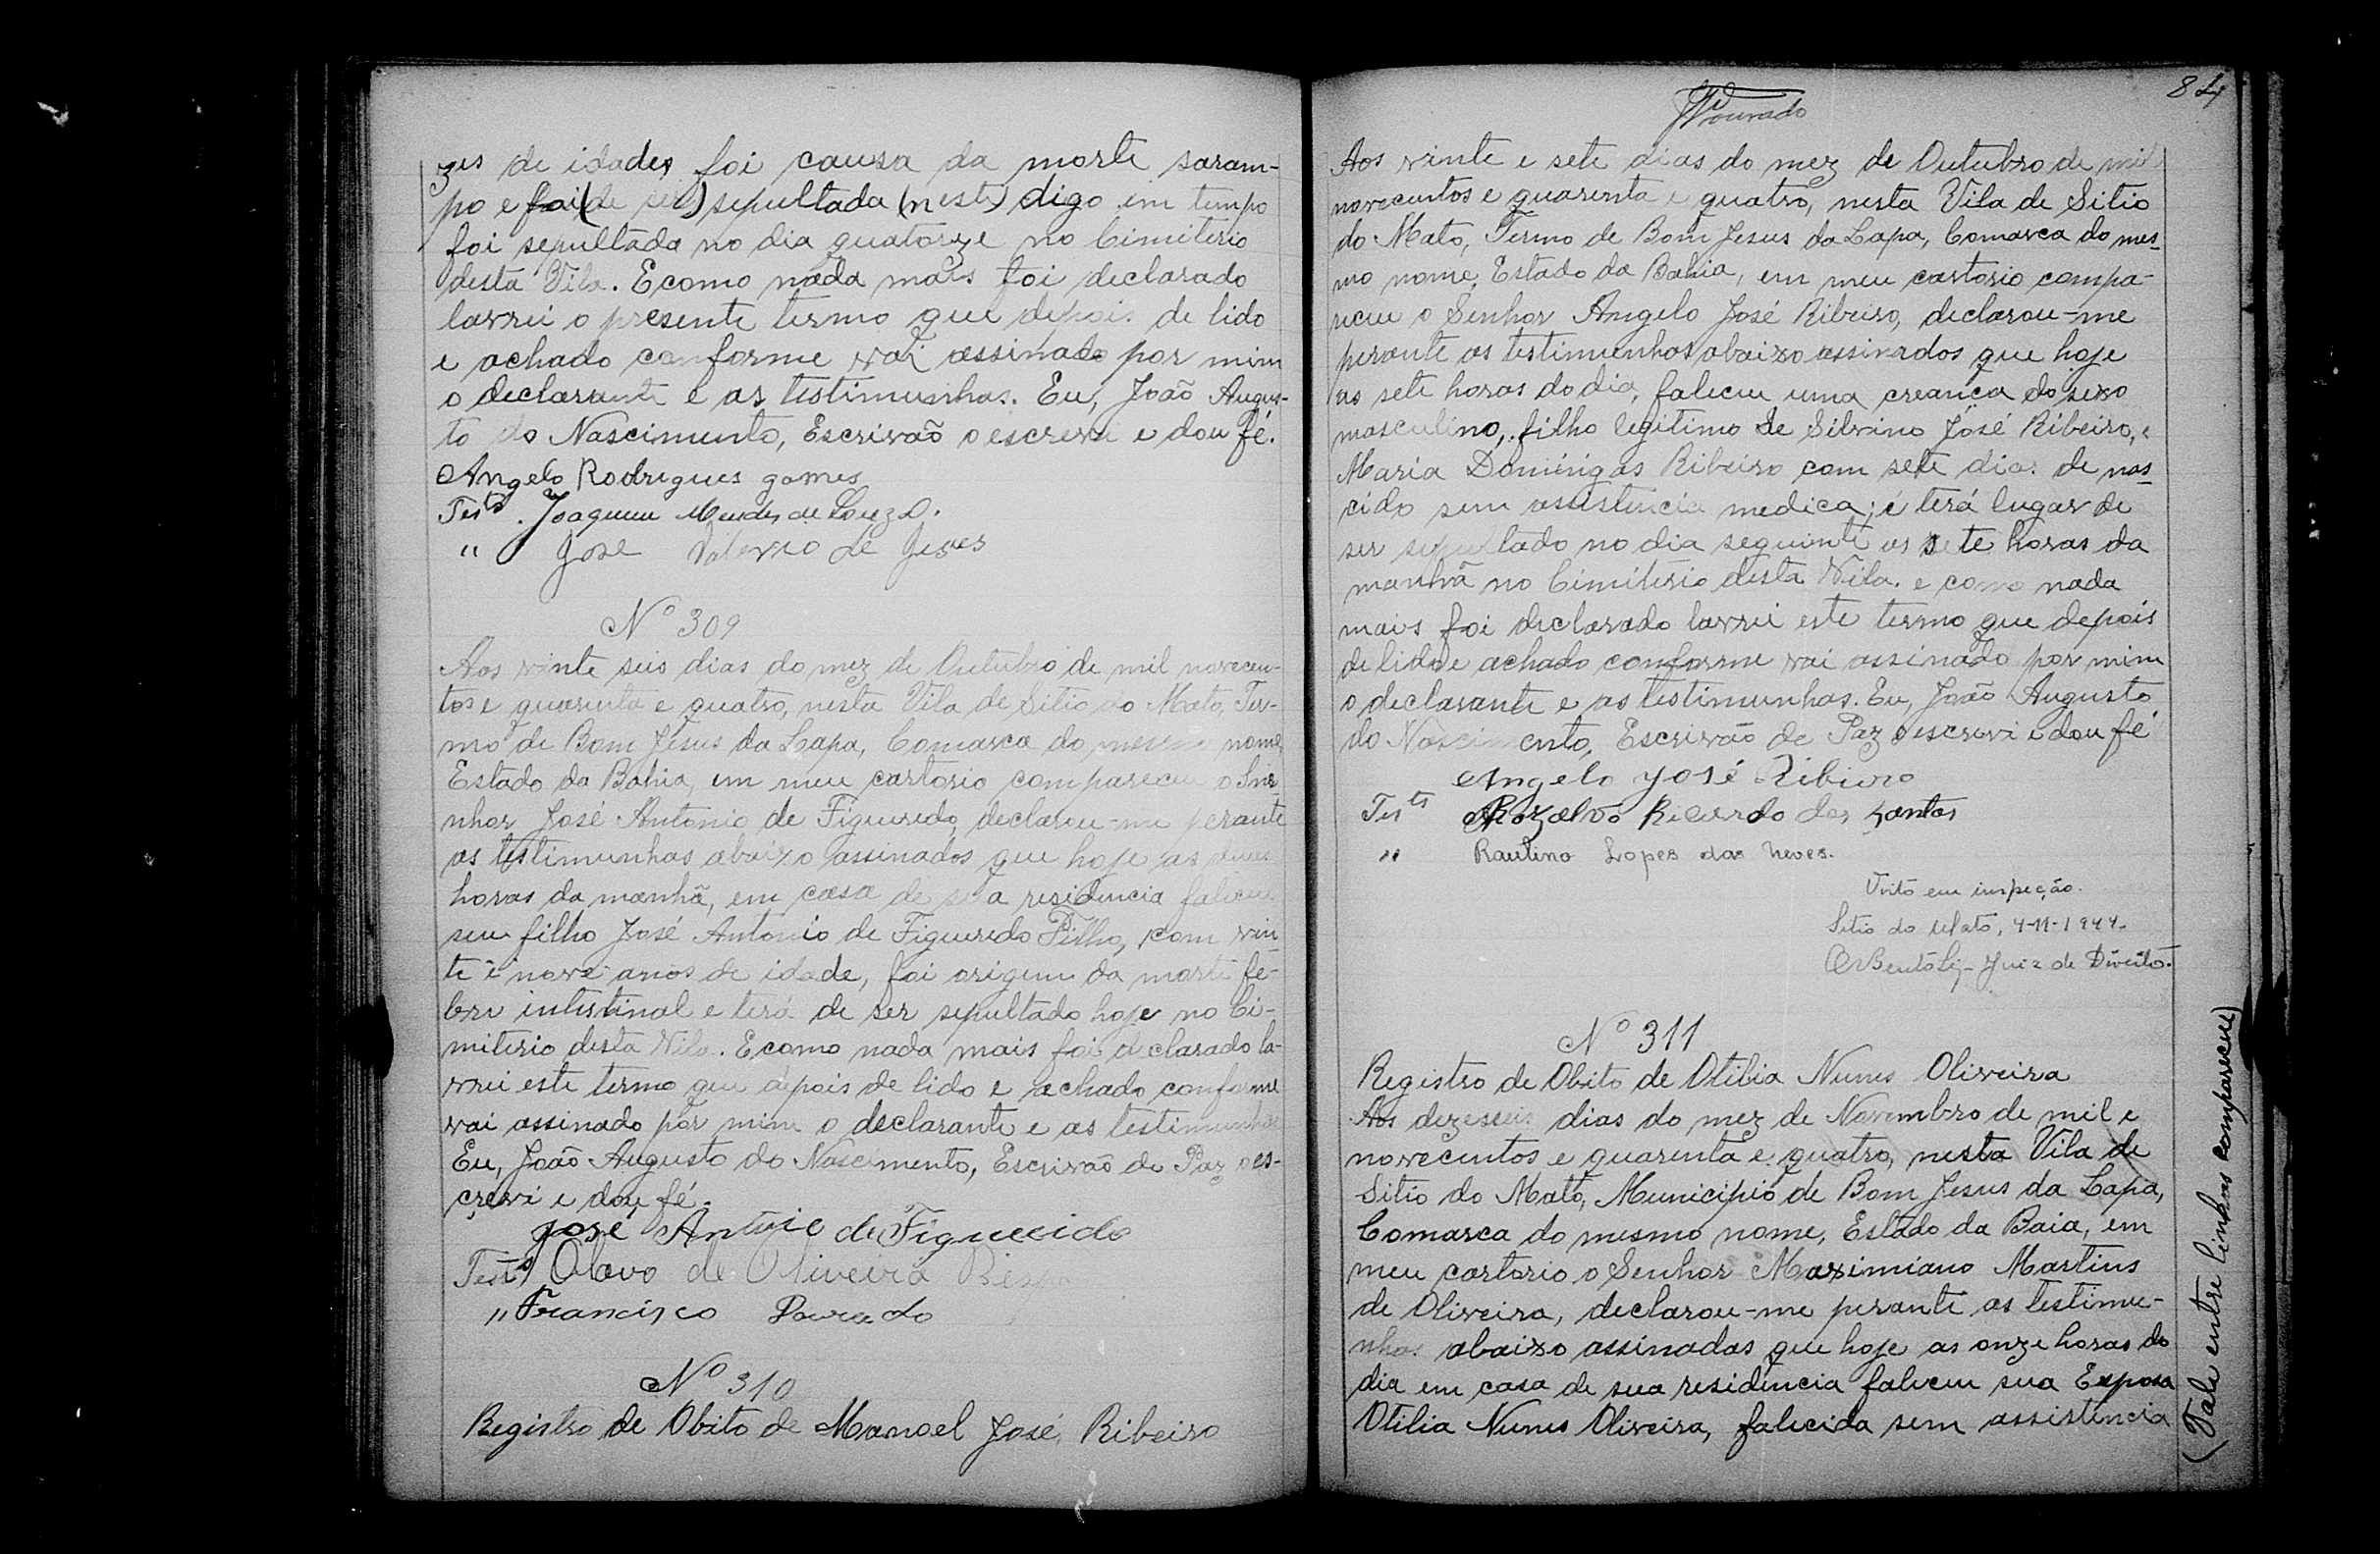 zes de idades foi causa da morte saram-
po e foi (de ser) sepultada (neste) digo em tempo
foi sepultada no dia quatorze no Cimiterio
desta Vila. E como nada mais foi declarado
lavrei o presente termo que depois de lido
e achado conforme vai assinado por mim
o declarante e as testimunhas. Eu, João Augus-
to do Nascimento, Escrivão o escrevi e dou fé.
Angelo Rodrigues gomes
Tests. Joaquim Mendes de Souza.
" José Valerio de Jesus
Nº 309
Aos vinte seis dias do mez de Outubro de mil novecen-
tos e quarenta e quatro, nesta Vila de Sitio do Mato, Ter-
mo de Bom Jesus da Lapa, Comarca do mesmo nome,
Estado da Bahia, em meu cartorio compareceu o Sne-
nhor José Antonio de Figueredo, declarou-me perante
as testimunhas abaixo assinados que hoje as duas
horas da manhã, em casa de sua residencia faleceu
seu filho José Antonio de Figueredo Filho, com vin-
te e nove anos de idade, foi origem da morte fe-
bre intestinal e terá de ser sepultado hoje no Ci-
miterio desta Vila. E como nada mais foi declarado la-
vrei este termo que depois de lido e achado conforme
vai assinado por mim o declarante e as testimunhas
Eu, João Augusto do Nascimento, Escrivão de Paz o es-
crevi e dou fé.
José Antonio de Figueeido
Tests Olavo de Oliveira
" Francisco Dourado
Nº 310
Registro de Obito de Manoel José Ribeiro
84
Dourado
Aos vinte e sete dias do mez de Outubro de mil
novecentos e quarenta e quatro, nesta Vila de Sitio
do Mato, Termo de Bom Jesus da Lapa, Comarca do mes-
mo nome, Estado da Bahia, em meu cartorio compa-
receu o Senhor Angelo José Ribeiro, declarou-me
perante as testimunhas abaixo assinados que hoje
as sete horas do dia, faleceu uma creança do sexo
masculino, filho legitimo de Silvino José Ribeiro, e
Maria Domingas Ribeiro com sete dias de nas-
cido sem assistencia medica; e terá lugar de
ser sepultado no dia seguinte as sete horas da
manhã no Cimiterio desta Vila. e como nada
mais foi declarado lavrei este termo que depois
de lido e achado conforme vai assinado por mim
o declarante e as testimunhas. Eu, João Augusto
do Nascimento, Escrivão de Paz o escrevi e dou fé
Angelo José Ribiero
Tests Rozalvo Ricardo dos Santos
" Raulino Lopes das Neves.
Visto em inspeção.
Sitio do Mato, 4-11-1944.
Juiz de Direito.
Nº 311
Registro de Obito de Otilia Nunes Oliveira
Aos dezeseis dias do mez de Novembro de mil e
novecentos e quarenta e quatro, nesta Vila de
Sitio do Mato, Municipio de Bom Jesus da Lapa,
Comarca do mesmo nome, Estado da Baia, em
meu cartorio o Senhor Maximiano Martins
de Oliveira, declarou-me perante as testimu-
nhas abaixo assinadas que hoje as onze horas do
dia em casa de sua residencia faleceu sua Esposa
Otilia Nunes Oliveira, falecida sem assistencia
(Fale entre linhas compareceu)